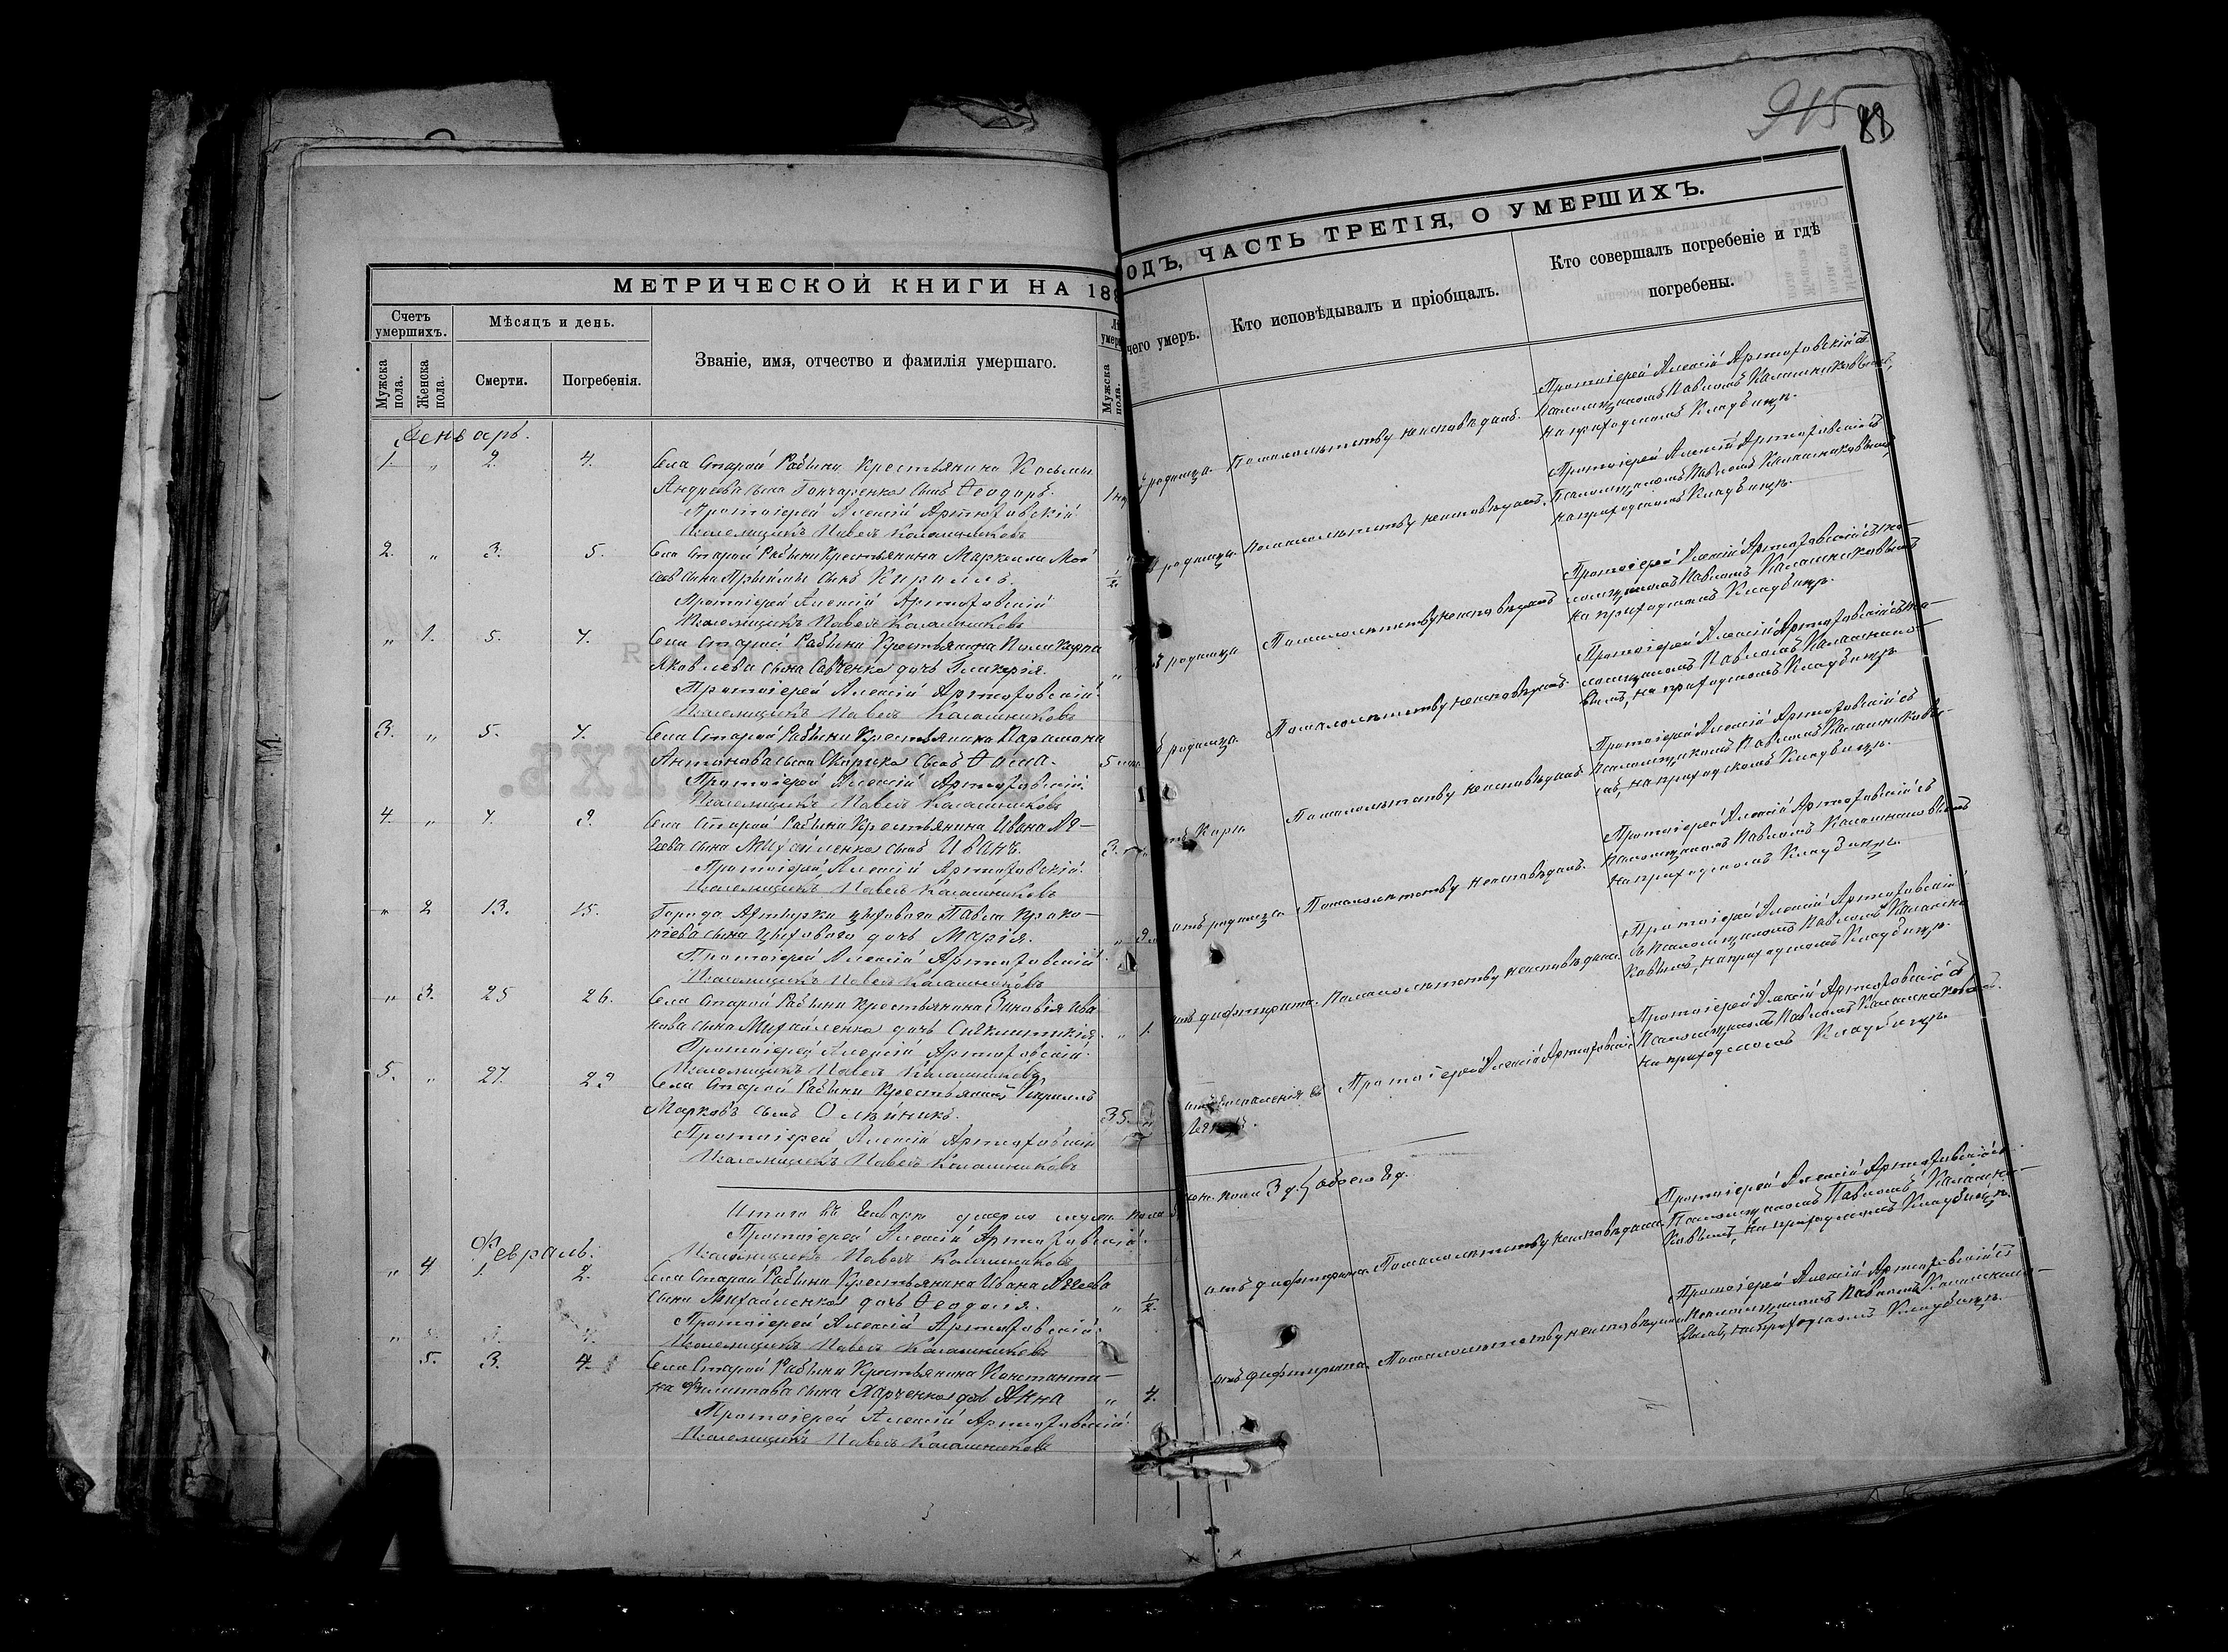 915 88
МЕТРИЧЕСКОЙ КНИГИ НА 189
Счетъ умершихъ.
Мужска пола.
Женска пола.
Мѣсяцъ и день.
Смерти.
Погребенія.
Званіе, имя, отчество и фамилія умершаго.
Мужска пола.
Январь.
1. " 2. 4. Села Старой Рябыни Крестьянина Космы
Андреева сына Гончаренка сынъ Ѳеодоръ.
Протоіерей Алексій Артюховскій
Псаломщикъ Павелъ Калашниковъ
2. " 3. 5. Села Старой Рябыни Крестьянина
сынъ Кириллъ. 1/2.
Протоіерей Алексій Артюховскій
Псаломщикъ Павелъ Калашниковъ
" 1. 5. 7. Села Старой Рябыни Крестьянина Поликарпа
Яковлева сына Савченка дочь Гликерія. "
Протоіерей Алексій Артюховскій
Псаломщикъ Павелъ Калашниковъ
3. " 5. 7. Села Старой Рябыни Крестьянина Парамона
Антонова сына сынъ Ѳома. 5
Протоіерей Алексій Артюховскій
Псаломщикъ Павелъ Калашниковъ
4. " 7. 9. Села Старой Рябыни Крестьянина Ивана
сына Михайленка сынъ Иванъ. 3.
Протоіерей Алексій Артюховскій
Псаломщикъ Павелъ Калашниковъ
" 2 13. 15. Города Ахтырки цеховаго Павла Проко-
піева сына дочь Марія. " 9.
Протоіерей Алексій Артюховскій
Псаломщикъ Павелъ Калашниковъ
" 3. 25 26. Села Старой Рябыни Крестьянина Зиновія Ива
нова сына Михайленка дочь Синклитикія. " 1.
Протоіерей Алексій Артюховскій
Псаломщикъ Павелъ Калашниковъ
5. " 27. 29 Села Старой Рябыни Крестьянинъ Кириллъ
Марковъ сынъ Олейникъ. 35.
Протоіерей Алексій Артюховскій
Псаломщикъ Павелъ Калашниковъ
Итого въ Январѣ умерло муж. пола 5
Протоіерей Алексій Артюховскій
Псаломщикъ Павелъ Калашниковъ
Февраль.
" 4 1. 2. Села Старой Рябыни Крестьянина Ивана
сына Михайленка дочь Ѳеодосія. " 1/2.
Протоіерей Алексій Артюховскій
Псаломщикъ Павелъ Калашниковъ
5. 3. 4. Села Старой Рябыни Крестьянина Константи-
на Филипова сына Харченка дочь Анна " 4.
Протоіерей Алексій Артюховскій
Псаломщикъ Павелъ Калашниковъ
ОДЪ, ЧАСТЬ ТРЕТІЯ, О УМЕРШИХЪ.
чего умеръ.
Кто исповѣдывалъ и пріобщалъ.
Кто совершалъ погребеніе и гдѣ погребены.
родимца. По малолѣтству неисповѣданъ. Протоіерей Алексій Артюховскій съ
Псаломщикомъ Павломъ Калашниковымъ,
на приходскомъ Кладбищѣ.
родимца. По малолѣтству неисповѣданъ. Протоіерей Алексій Артюховскій съ
Псаломщикомъ Павломъ Калашниковымъ
на приходскомъ Кладбищѣ.
родимца По малолѣтству неисповѣдана Протоіерей Алексій Артюховскій съ Пса-
ломщикомъ Павломъ Калашниковымъ
на приходскомъ Кладбищѣ.
родимца. По малолѣтству неисповѣданъ. Протоіерей Алексій Артюховскій съ Пса-
ломщикомъ Павломъ Калашнико-
вымъ, на приходскомъ Кладбищѣ
Кори. По малолѣтству неисповѣданъ Протоіерей Алексій Артюховскій съ
Псаломщикомъ Павломъ
на приходскомъ Кладбищѣ.
отъ родимца. По малолѣтству неисповѣдана. Протоіерей Алексій Артюховскій съ
Псаломщикомъ Павломъ Калашниковымъ
на приходскомъ Кладбищѣ.
отъ дифтерита. По малолѣтству неисповѣдана. Протоіерей Алексій Артюховскій
съ Псаломщикомъ Павломъ Калашни
ковымъ, на приходскомъ Кладбищѣ.
отъ воспаленія въ Протоіерей Алексій Артюховскій Протоіерей Алексій Артюховскій съ
Псаломщикомъ Павломъ Калашниковымъ.
на приходскомъ Кладбищѣ.
жен. пола 3 д. обоего 8 д.
отъ дифтерита. По малолѣтству неисповѣдана. Протоіерей Алексій Артюховскій съ
Псаломщикомъ Павломъ Калашни-
ковымъ, на приходскомъ Кладбищѣ.
отъ дифтерита. По малолѣтству неисповѣдана Протоіерей Алексій Артюховскій съ
Псаломщикомъ Павломъ Калашнико-
вымъ, на приходскомъ Кладбищѣ.